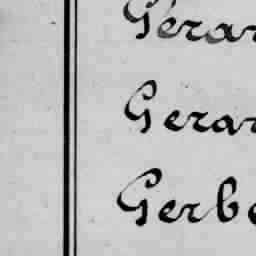 Gerar
Gerar
Gerbe